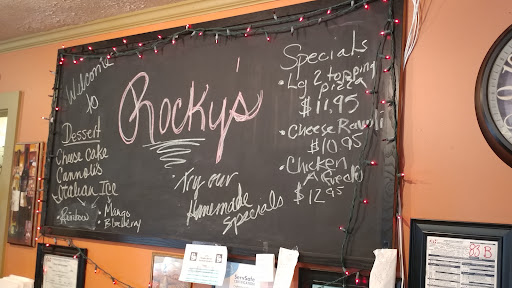 Welcome
to
Rocky's
Dessert
Cheese cake
Cannoli's
Italian Ice
Rainbow
• Mango
• Blueberry
Try our
Homemade
Specials
Specials
• Lg 2 topping
pizza
$11.95
• Cheese Ravioli
$10.95
• Chicken
Alfredo
$12.95
ServSafe
83 B